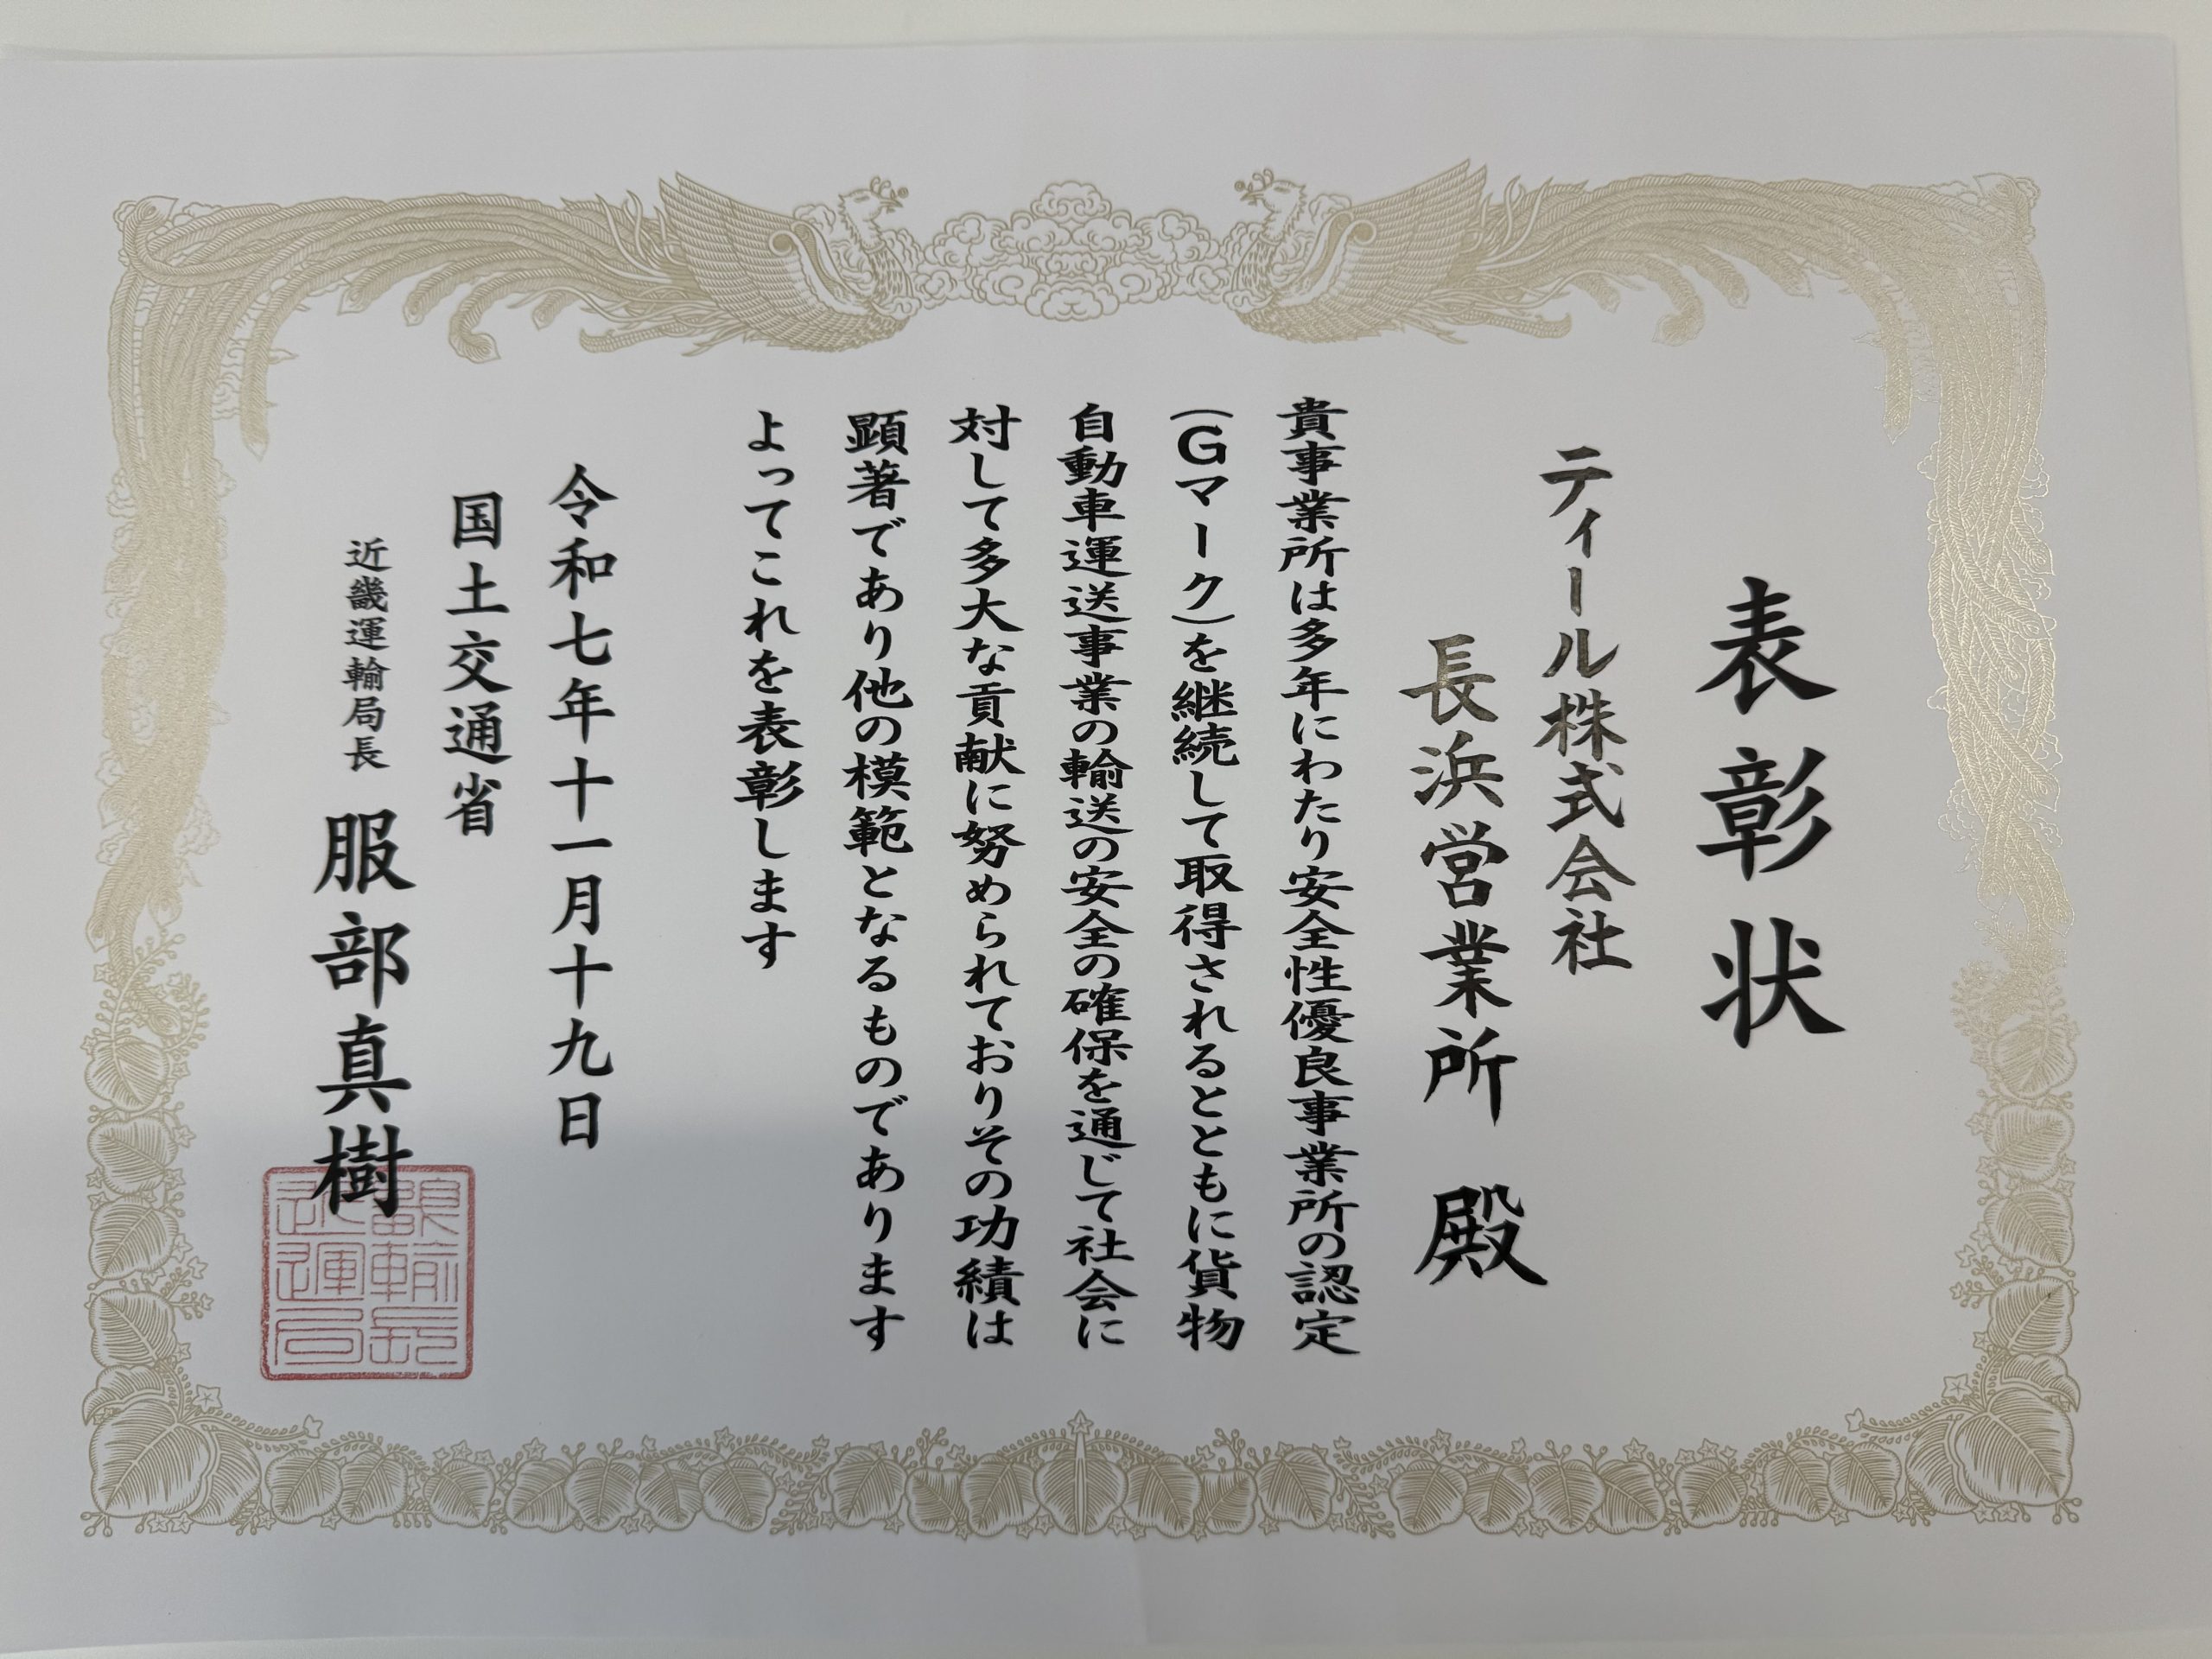 表彰状
ティール株式会社
長浜営業所 殿
貴事業所は多年にわたり安全性優良事業所の認定
(Gマーク)を継続して取得されるとともに貨物
自動車運送事業の輸送の安全の確保を通じて社会に
対して多大な貢献に努められておりその功績は
顕著であり他の模範となるものであります
よってこれを表彰します
令和七年十一月十九日
国土交通省
近畿運輸局長 服部真樹
近運局
畿輸長